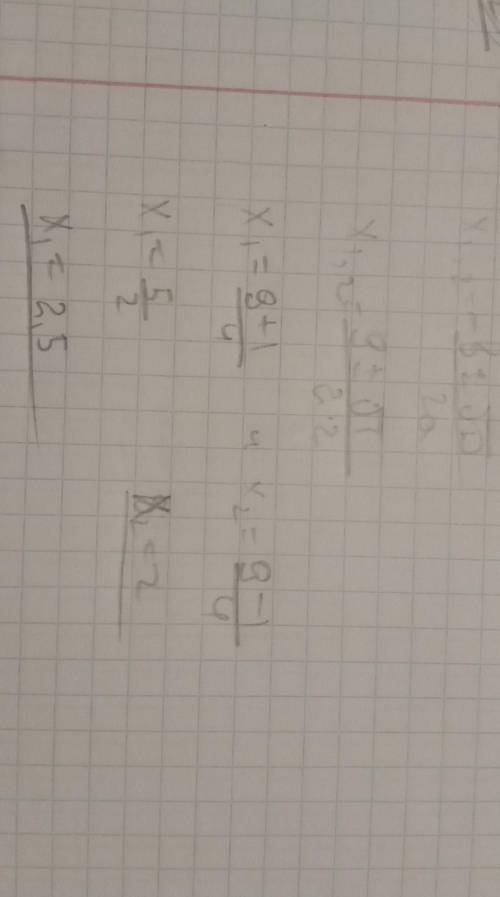 x₁,₂ = (-b ± √D) / 2a
x₁,₂ = (9 ± √1) / 2·2
x₁ = (9+1) / 4 и x₂ = (9-1) / 4
x₁ = 5/2 x₂ = 2
x₁ = 2,5